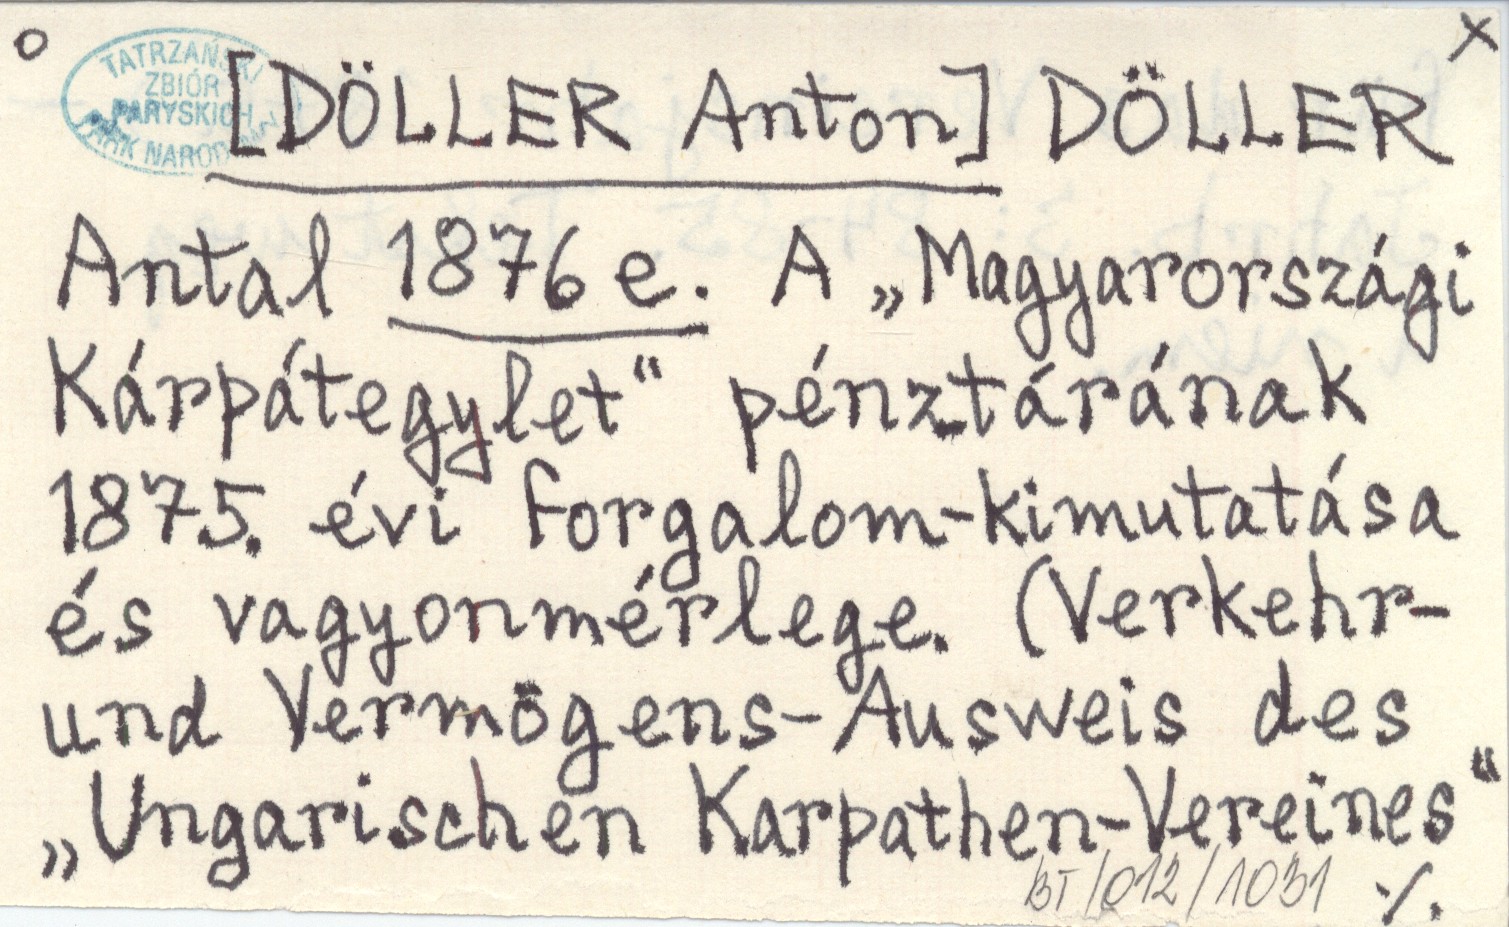 o
x
TATRZAŃSKI
ZBIÓR
PARYSKICH
PARK NARODOWY
[DÖLLER Anton] DÖLLER
Antal 1876 e. A „Magyarországi
Kárpátegylet“ pénztárának
1875. évi forgalom-kimutatása
és vagyonmérlege. (Verkehr-
und Vermögens-Ausweis des
„Ungarischen Karpathen-Vereines“
BT/012/1031
·/.